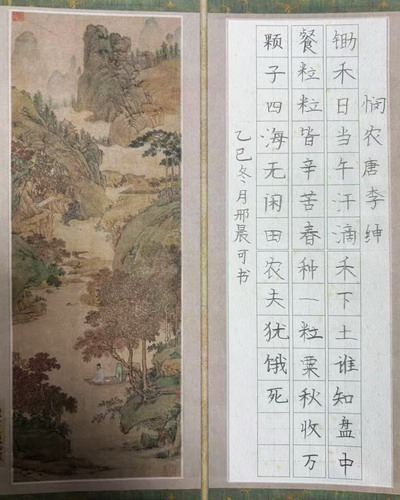 悯农唐李绅
锄禾日当午汗滴禾下土谁知盘中
餐粒粒皆辛苦春种一粒粟秋收万
颗子四海无闲田农夫犹饿死
乙巳冬月邢晨可书